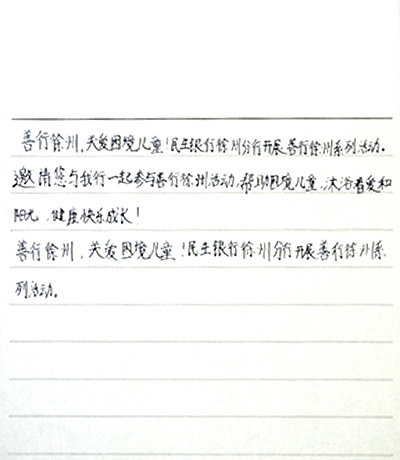 善行徐州，关爱困境儿童！民生银行徐州分行开展善行徐州系列活动。
邀请您与我行一起参与善行徐州活动，帮助困境儿童，沐浴着爱和
阳光，健康快乐成长！
善行徐州，关爱困境儿童！民生银行徐州分行开展善行徐州系
列活动。